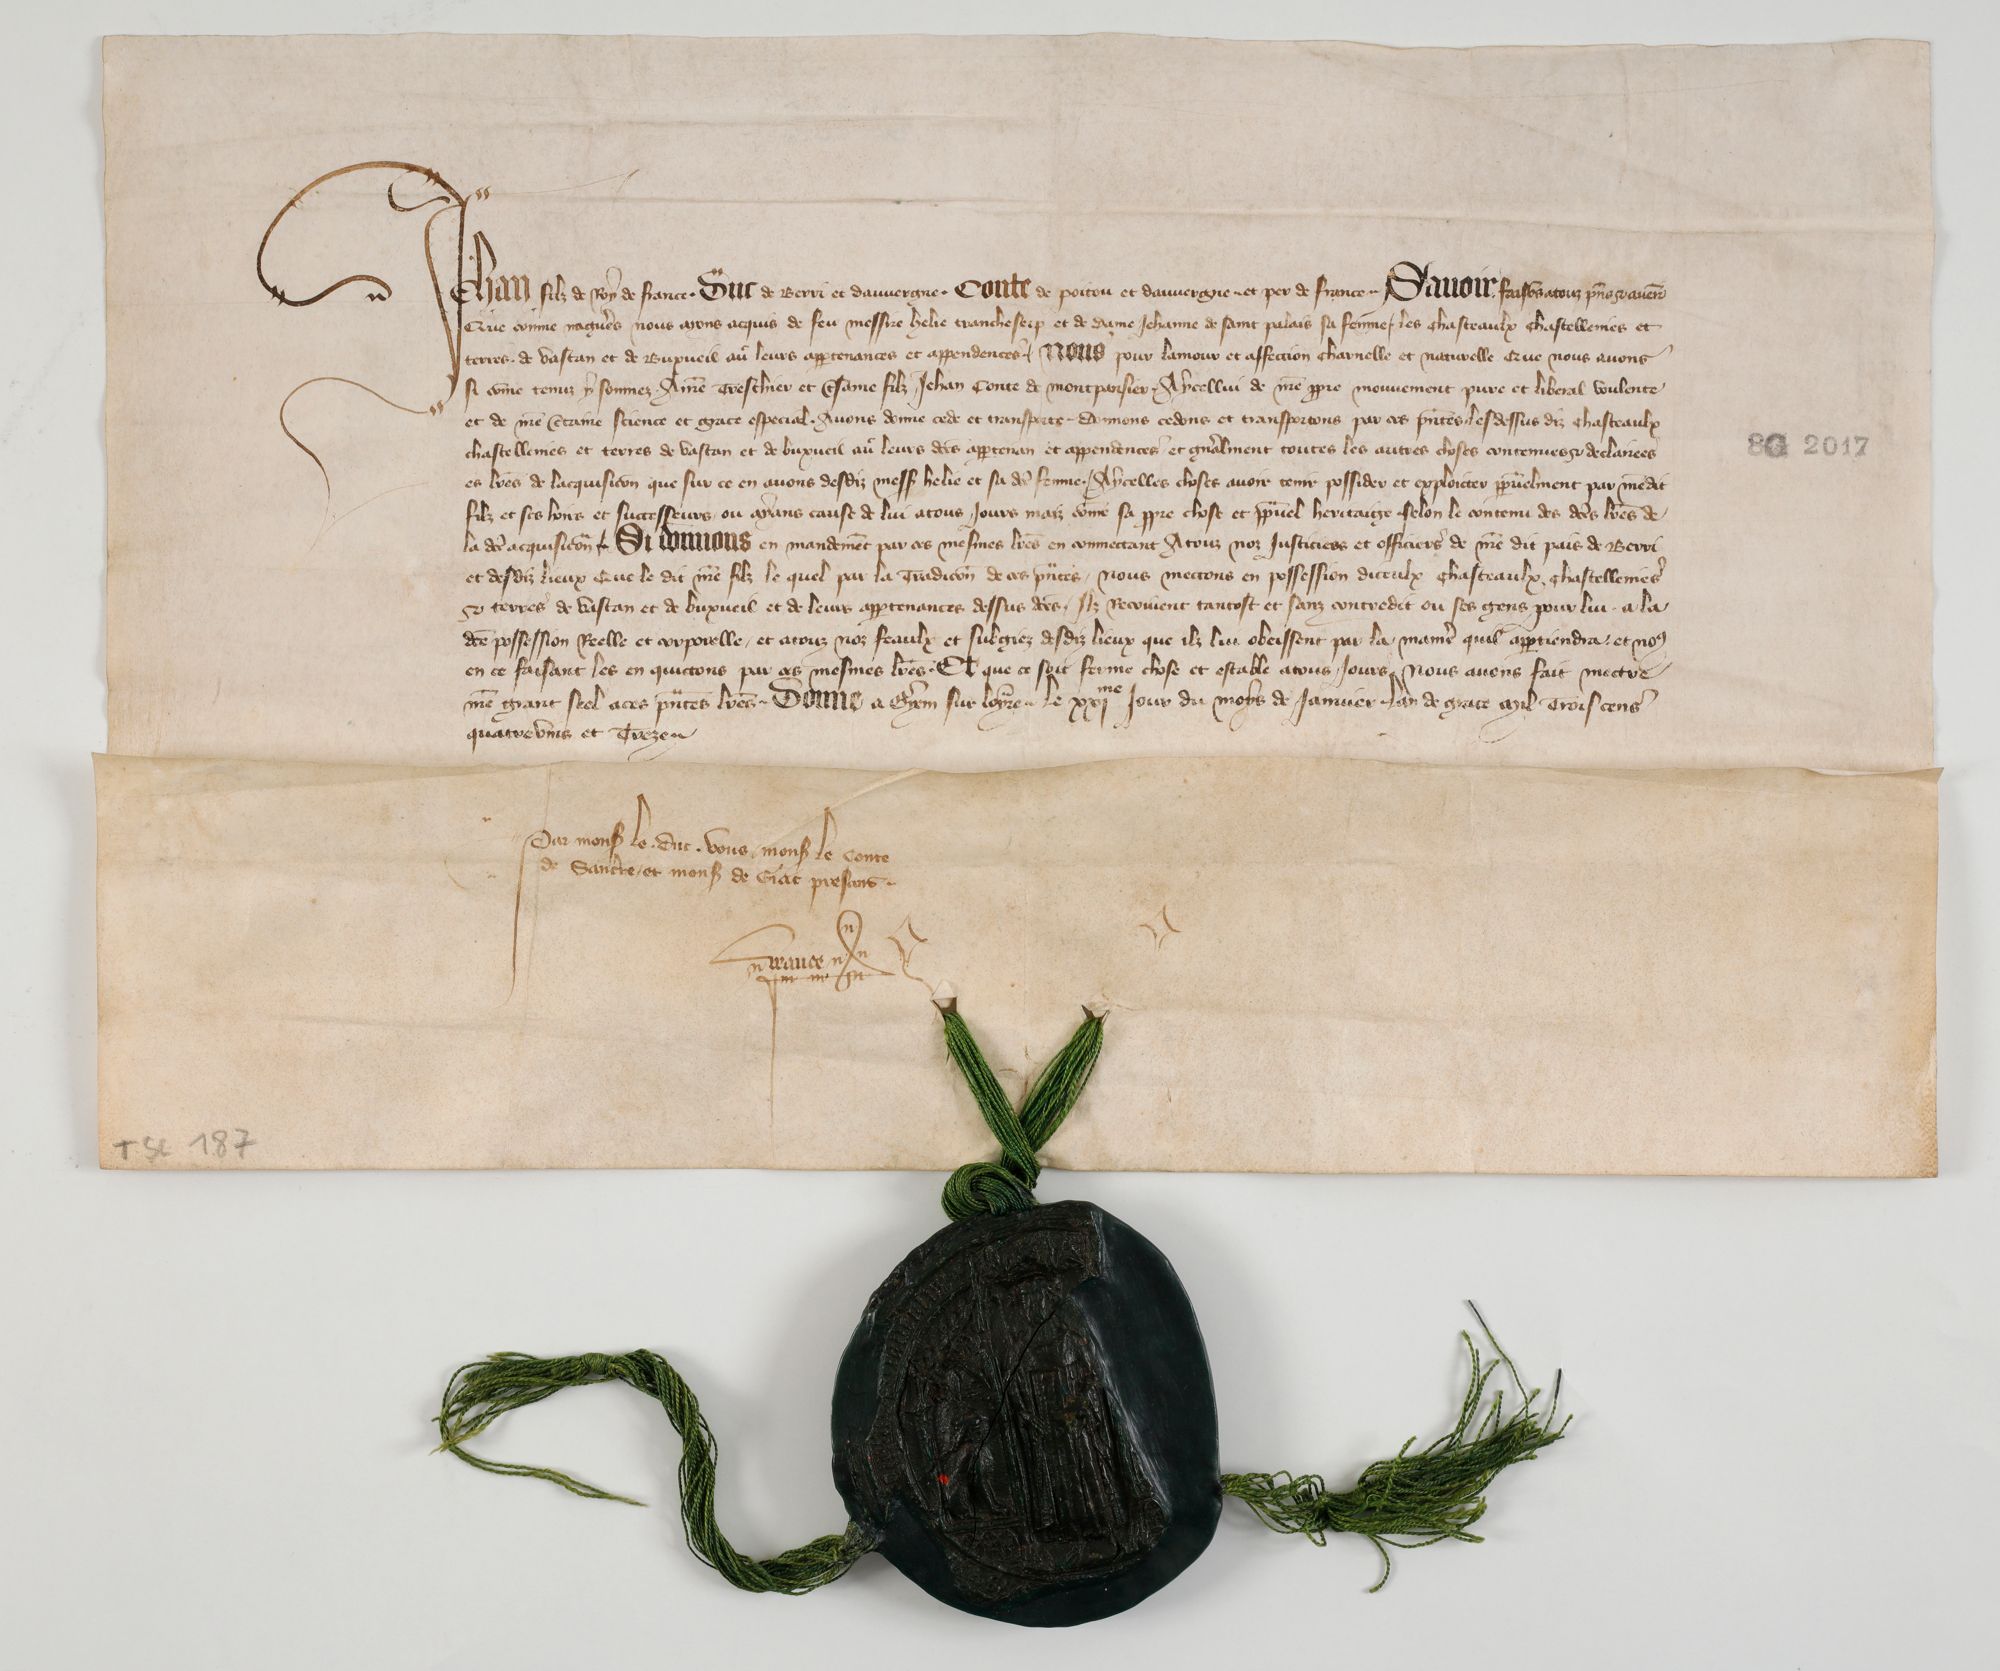 Jehan filz de Roy de france. Duc de Berri et dauuergne. Conte de poitou et dauuergne. et per de france. Sauoir faisōs atouz p̄ns ⁊ auenir
Que comme nagueres nous ayons acquis de feu messire helie trancheserp et de dame Jehanne de saint palais sa femme / les chasteaulx chastellenies et
terres. de Vastan et de Buxueil au leurs apptenances et appendences / Nous pour lamour et affection charnelle et naturelle Que nous auons
si cōme tenuz y sommez. A nre Treschier et Esame filz Jehan Conte de montpansier. Aycellui de nre ppre mouuement pure et liberal voulente
et de nre Ctaine science et grace especial. Auons donne cede et transporte. Donnons cedons et transportons par ces pntes / lesdessus diz chasteaulx
chastellenies et terres de Vastan et de buxueil au leurs dces apptenan et appendences et gnalment toutes les autres choses contenues ⁊ declairees
es lres de lacquisicōn que sur ce en auons desdiz mess helie et sa dce femme. Aycelles choses auoir tenir possider et exploictier ppuelment par nredit
filz et ses hoirs et successeurs. ou ayans cause de lui atous Jours maiz cōme sa ppre chose et ppuel heritaige. selon le contenu des dces lres de
la dce acquisicōn. Si donnons en mandemēt par ces mesmes lres en commectant Atouz noz Justiciers et officiers de nre dit pais de Berri
et desdiz lieux Que le dit nre filz le quel par la Tradicōn de ces pntes / nous mectons en possession diceulx Chasteaulx. Chastellenies
⁊ terres de Vastan et de buxueil et de leurs apptenances dessus dces / Ilz Recoiuent tantost et sanz contredit ou ses gens pour lui. a la
dce possession Reelle et corporelle / et atouz noz feaulx et subgiez desdiz lieux que ilz lui obeissent par la maniere quil apptiendra / et nous
en ce faisant les en quictons par ces mesmes lres. Et que ce soit ferme chose et estable atous Jours. Nous auons fait mectre
nre grant seel aces pntes lres. Donne a Gyem sur loyre. le xxjme Jour du moys de Januier. lan de grace mil Trois cens
quatrevins et Treze
Par mons le duc. vous / mons le Conte
de Sancrre / et mons de Giac presens
8G 2017
187